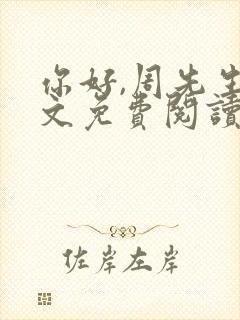 你好,周先生
文免費閱讀
佐岸左岸